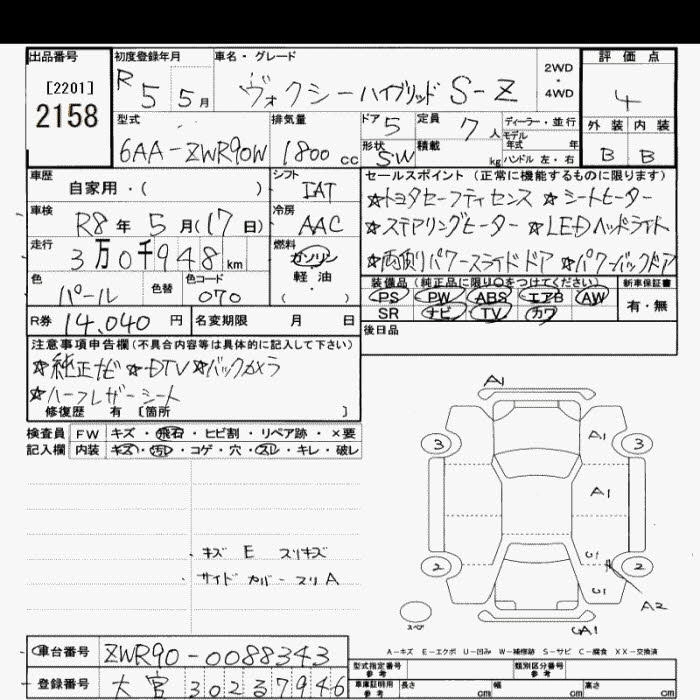 出品番号 初度登録年月 車名・グレード 評価点
[2201]
2158
R 5 5月 ヴォクシーハイブリッド S-Z 2WD・4WD 4
型式 排気量 ドア 定員 ディーラー・並行 外装 内装
6AA-ZWR90W 1800cc 5 7人 モデル年式 年 B B
形状 SW 積載 kg ハンドル 左・右
車歴 シフト セールスポイント (正常に機能するものに限ります)
自家用・( ) IAT ☆トヨタセーフティセンス ☆シートヒーター
車検 冷房 ☆ステアリングヒーター ☆LEDヘッドライト
R8年 5月(17日) AAC ☆両側パワースライドドア ☆パワーバックドア
走行 3万0千948km 燃料 ガソリン
軽・油
・( )
色 パール 色替 色コード 070
装備品 (純正品に限り○をつけてください) 新車保証書
PS PW ABS エアB AW 有・無
SR ナビ TV カワ
R券 14,040円 名変期限 月 日 後日品
注意事項申告欄(不具合内容等は具体的に記入して下さい)
☆純正ナビ ☆DTV ☆バックカメラ
☆ハーフレザーシート
修復歴 有 〔箇所 〕
検査員 FW キズ・飛石・ヒビ割・リペア跡・×要
記入欄 内装 キズ・汚レ・コゲ・穴・スレ・キレ・破レ
・キズ E スリキズ
・サイドカバースリA
A1
3 A1 3
A1
2 U1 2
U1 A2
スペア A1
A-キズ E-エクボ U-凹み W-補修跡 S-サビ C-腐食 XX-交換済
車台番号 ZWR90-0088343
登録番号 大宮 302 る 7946
型式指定番号 参考 類別区分番号 参考
車庫証明用 参考 長さ cm 幅 cm 高さ cm